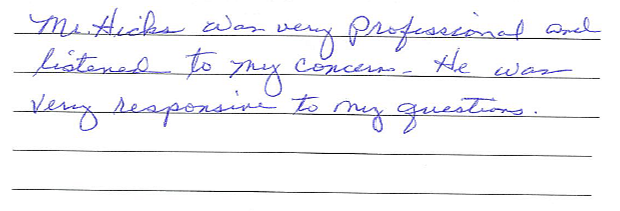 Mr. Hicks was very professional and
listened to my concern. He was
very responsive to my questions.